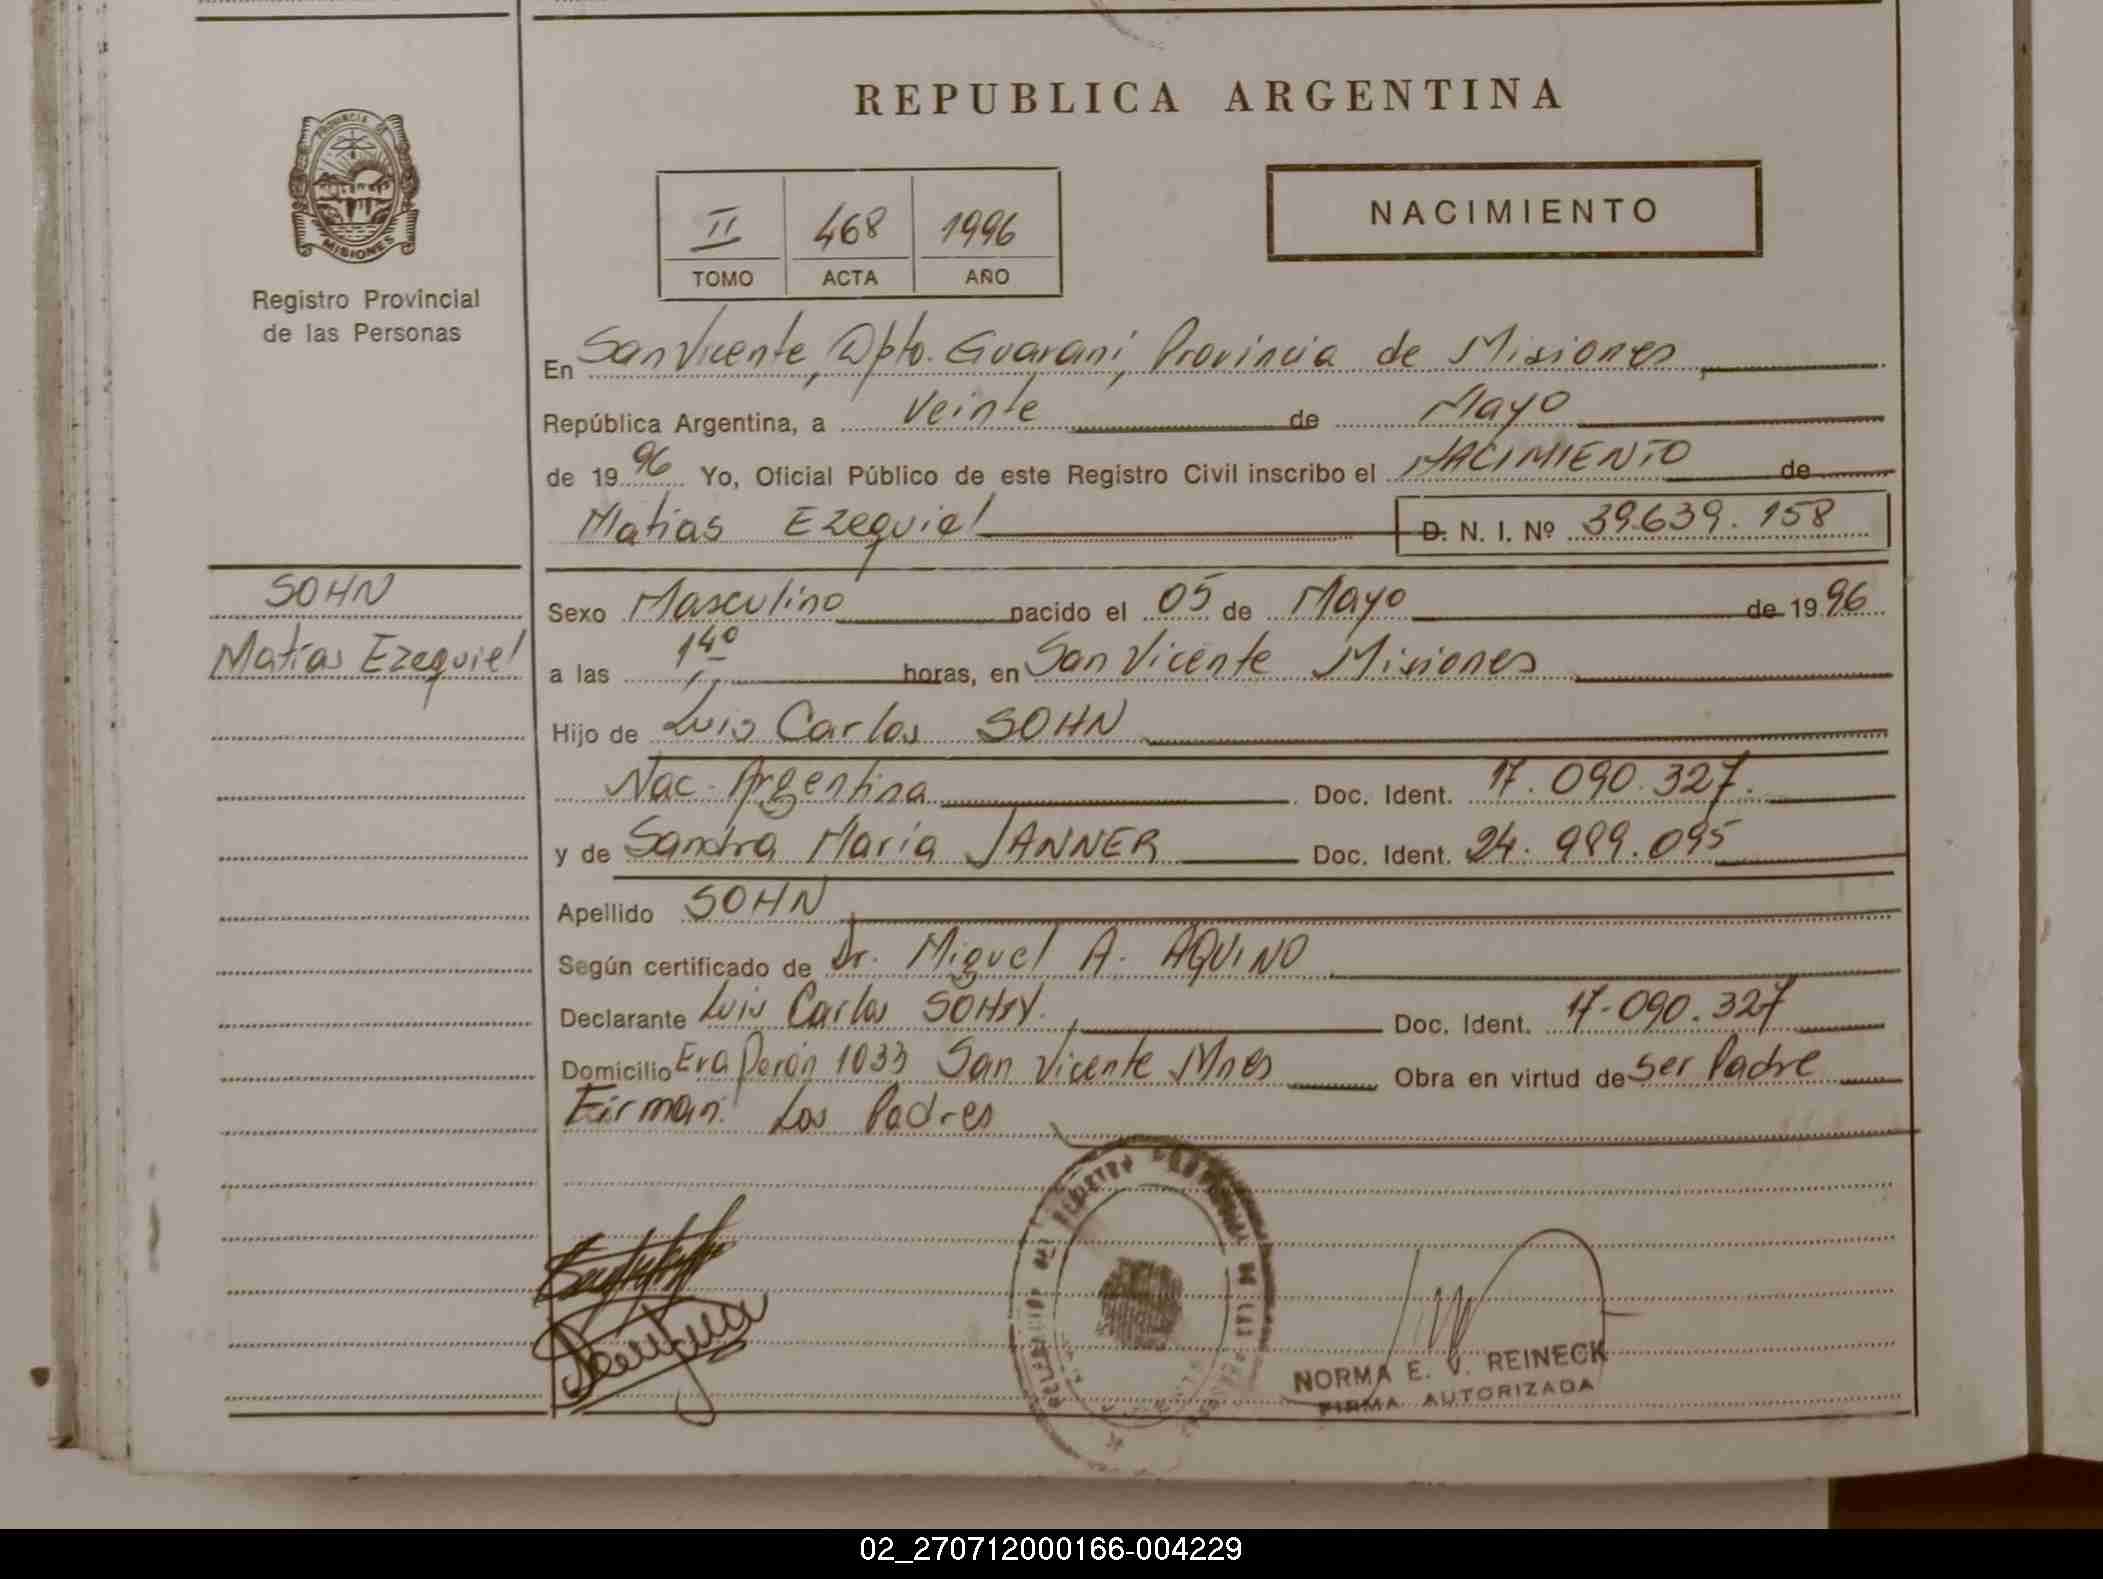 REPUBLICA ARGENTINA
PROVINCIA DE
MISIONES
Registro Provincial
de las Personas
II 468 1996
TOMO ACTA AÑO
NACIMIENTO
En San Vicente, Dpto. Guaraní, Provincia de Misiones
República Argentina, a Veinte de Mayo
de 1996 Yo, Oficial Público de este Registro Civil inscribo el NACIMIENTO de
Matías Ezequiel D. N. I. Nº 39.639.158
SOHN
Matías Ezequiel
Sexo Masculino nacido el 05 de Mayo de 1996
a las 14º horas, en San Vicente Misiones
Hijo de Luis Carlos SOHN
Nac. Argentina Doc. Ident. 17.090.327.
y de Sandra María JANNER Doc. Ident. 24.989.095
Apellido SOHN
Según certificado de Dr. Miguel A. AQUINO
Declarante Luis Carlos SOHN. Doc. Ident. 17.090.327
Domicilio Eva Perón 1033 San Vicente Mnes Obra en virtud de ser Padre
Firman: Los Padres
NORMA E. V. REINECK
FIRMA AUTORIZADA
02_270712000166-004229